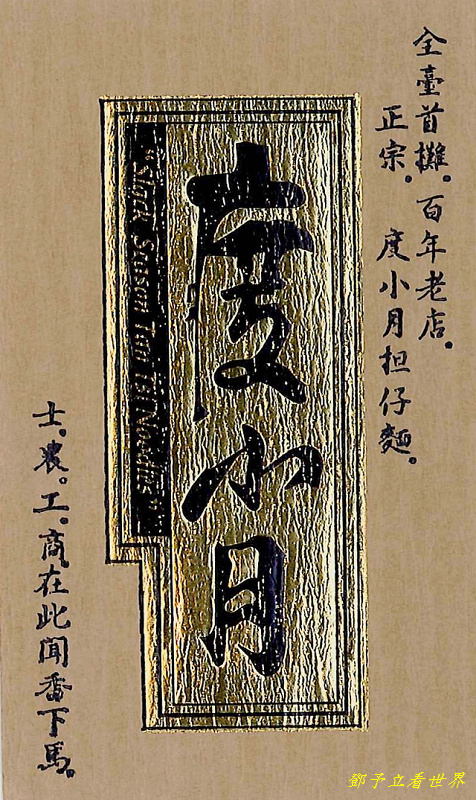 全臺首攤。百年老店。
正宗。度小月担仔麵。
度小月
"Slack Season Tan Tsi Noodles"
士。農。工。商。在此聞香下馬。
鄧予立看世界